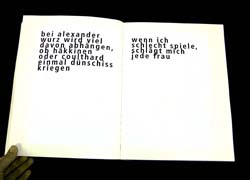 bei alexander
wurz wird viel
davon abhängen,
ob häkkinen
oder coulthard
einmal dünschiss
kriegen
wenn ich
schlecht spiele,
schlägt mich
jede frau